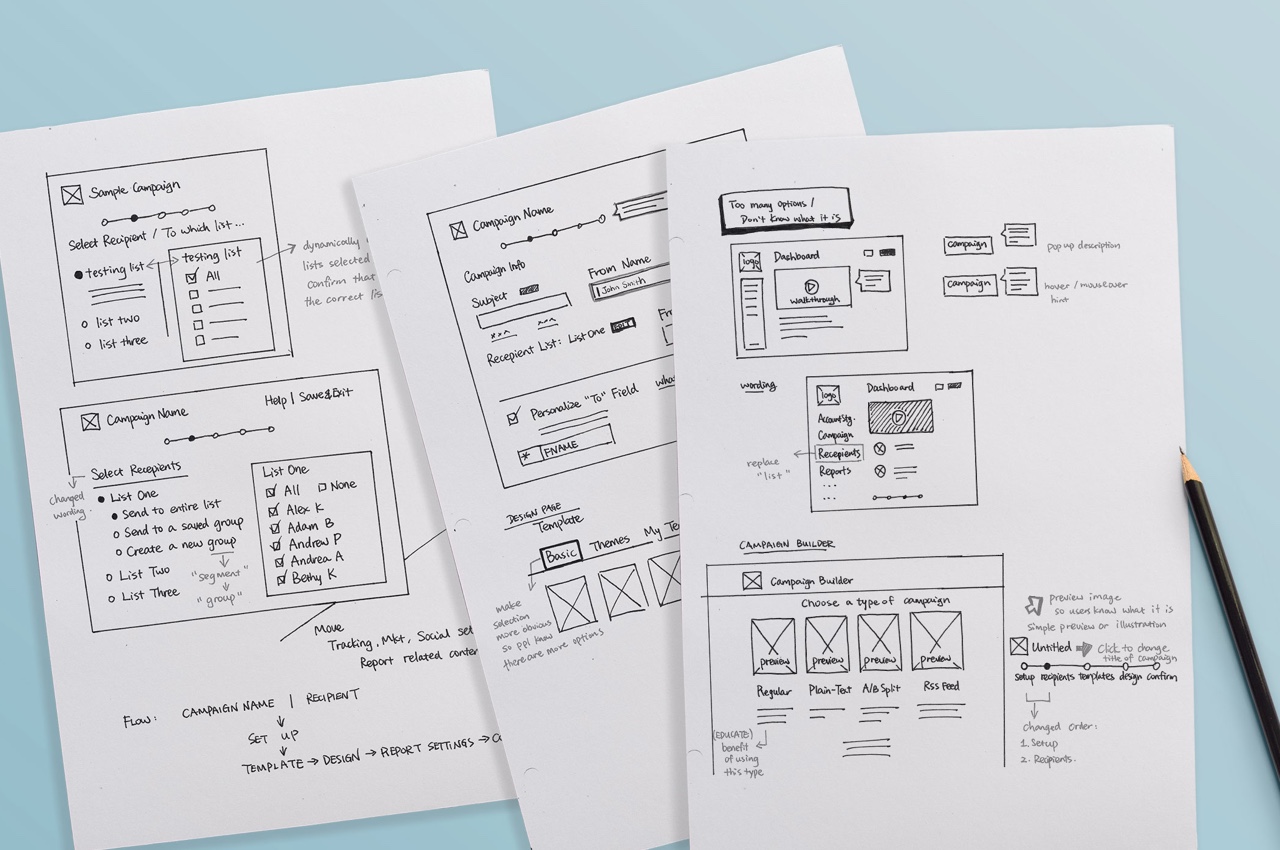 Sample Campaign
Select Recipient / To which list...
testing list
list two
list three
testing list
All
dynamically
lists selected
confirm that
the correct lis
Campaign Name
Help | Save & Exit
Select Recepients
changed
wording
List One
Send to entire list
Send to a saved group
Create a new group
List Two
List Three
"segment"
"group"
List One
All
None
Alex K
Adam B
Andrew P
Andrea A
Bethy K
Move
Tracking, Mkt, Social set
Report related conten
Flow:
CAMPAIGN NAME | RECIPIENT
SET UP
TEMPLATE → DESIGN → REPORT SETTINGS →
Campaign Name
Campaign Info
Subject
From Name
John Smith
Recepient List: List One
EDIT
Fr
Personalize "To" Field
wha
* FNAME
DESIGN PAGE
Template
Basic
Themes
My Te
make
selection
more obvious
so ppl know
there are more options
Too many options /
Don't know what it is
logo
Dashboard
walkthrough
campaign
pop up description
campaign
hover / mouseover
hint
wording
logo
Dashboard
Campaign
Recepients
Reports
...
...
replace
"list"
CAMPAIGN BUILDER
Campaign Builder
Choose a type of campaign
preview
preview
preview
preview
Regular
Plain-Text
A/B Split
RSS Feed
(EDUCATE)
benefit
of using
this type
preview image
so users know what it is
simple preview or illustration
Untitled
Click to change
title of campaign
setup recipients templates design confirm
changed order:
1. Setup
2. Recipients.